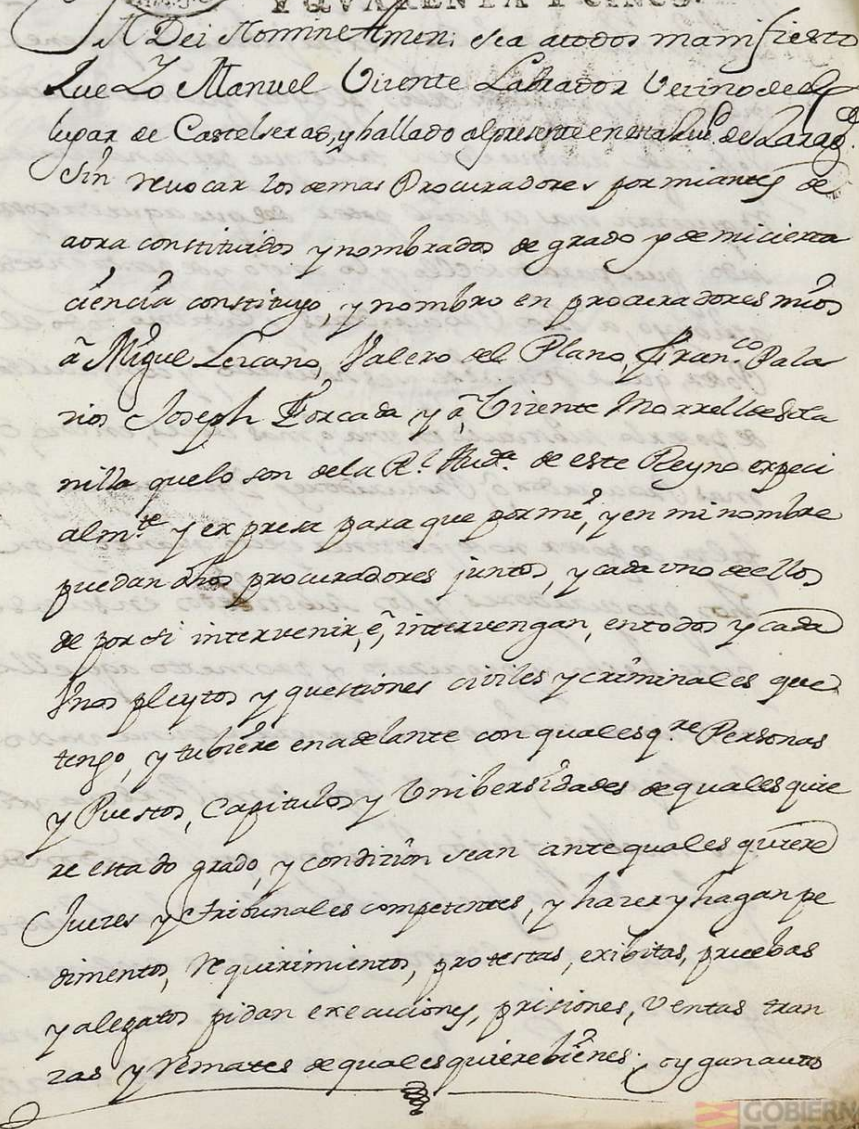 Y QVARENTA Y CINCO.
In Dei Nomine Amen: sea atodos manifiesto
Que Yo Manuel Vizente Labrador Vezino del
lugar de Castelseras, y hallado alpresente enesta Ciud de Zarag.
Sin revocar los demas Procuradores por miantes de
aora constituidos y nombrados de grado y de micierta
ciencia constituyo, y nombro en procuradores mios
â Miguel Lezcano, Valero del Plano, Fran.co Pala
zios Joseph Forcada y â Vizente Morrell
nilla quelo son dela Rl. Aud.a de este Reyno expeci
alm.te y expresa para que por mi, y en mi nombre
puedan dhos procuradores juntos, y cada vno deellos
de porsi intervenir, ê, intervengan, entodos y cada
Vnos pleytos y questiones civiles y criminales que
tengo, y tubiere enadelante con qualesq.re Personas
y Puestos, Capitulos y Vnibersidades dequalesquie
re estado grado, y condizion sean antequalesquiere
Juezes y tribunales competentes, y hazer y hagan pe
dimentos, requirimientos, protestas, exibitas, pruebas
y alegatos pidan execuciones, prisiones, Ventas tran
zas y remates dequalesquierebienes: oygan autos
GOBIERN
DE ARAG